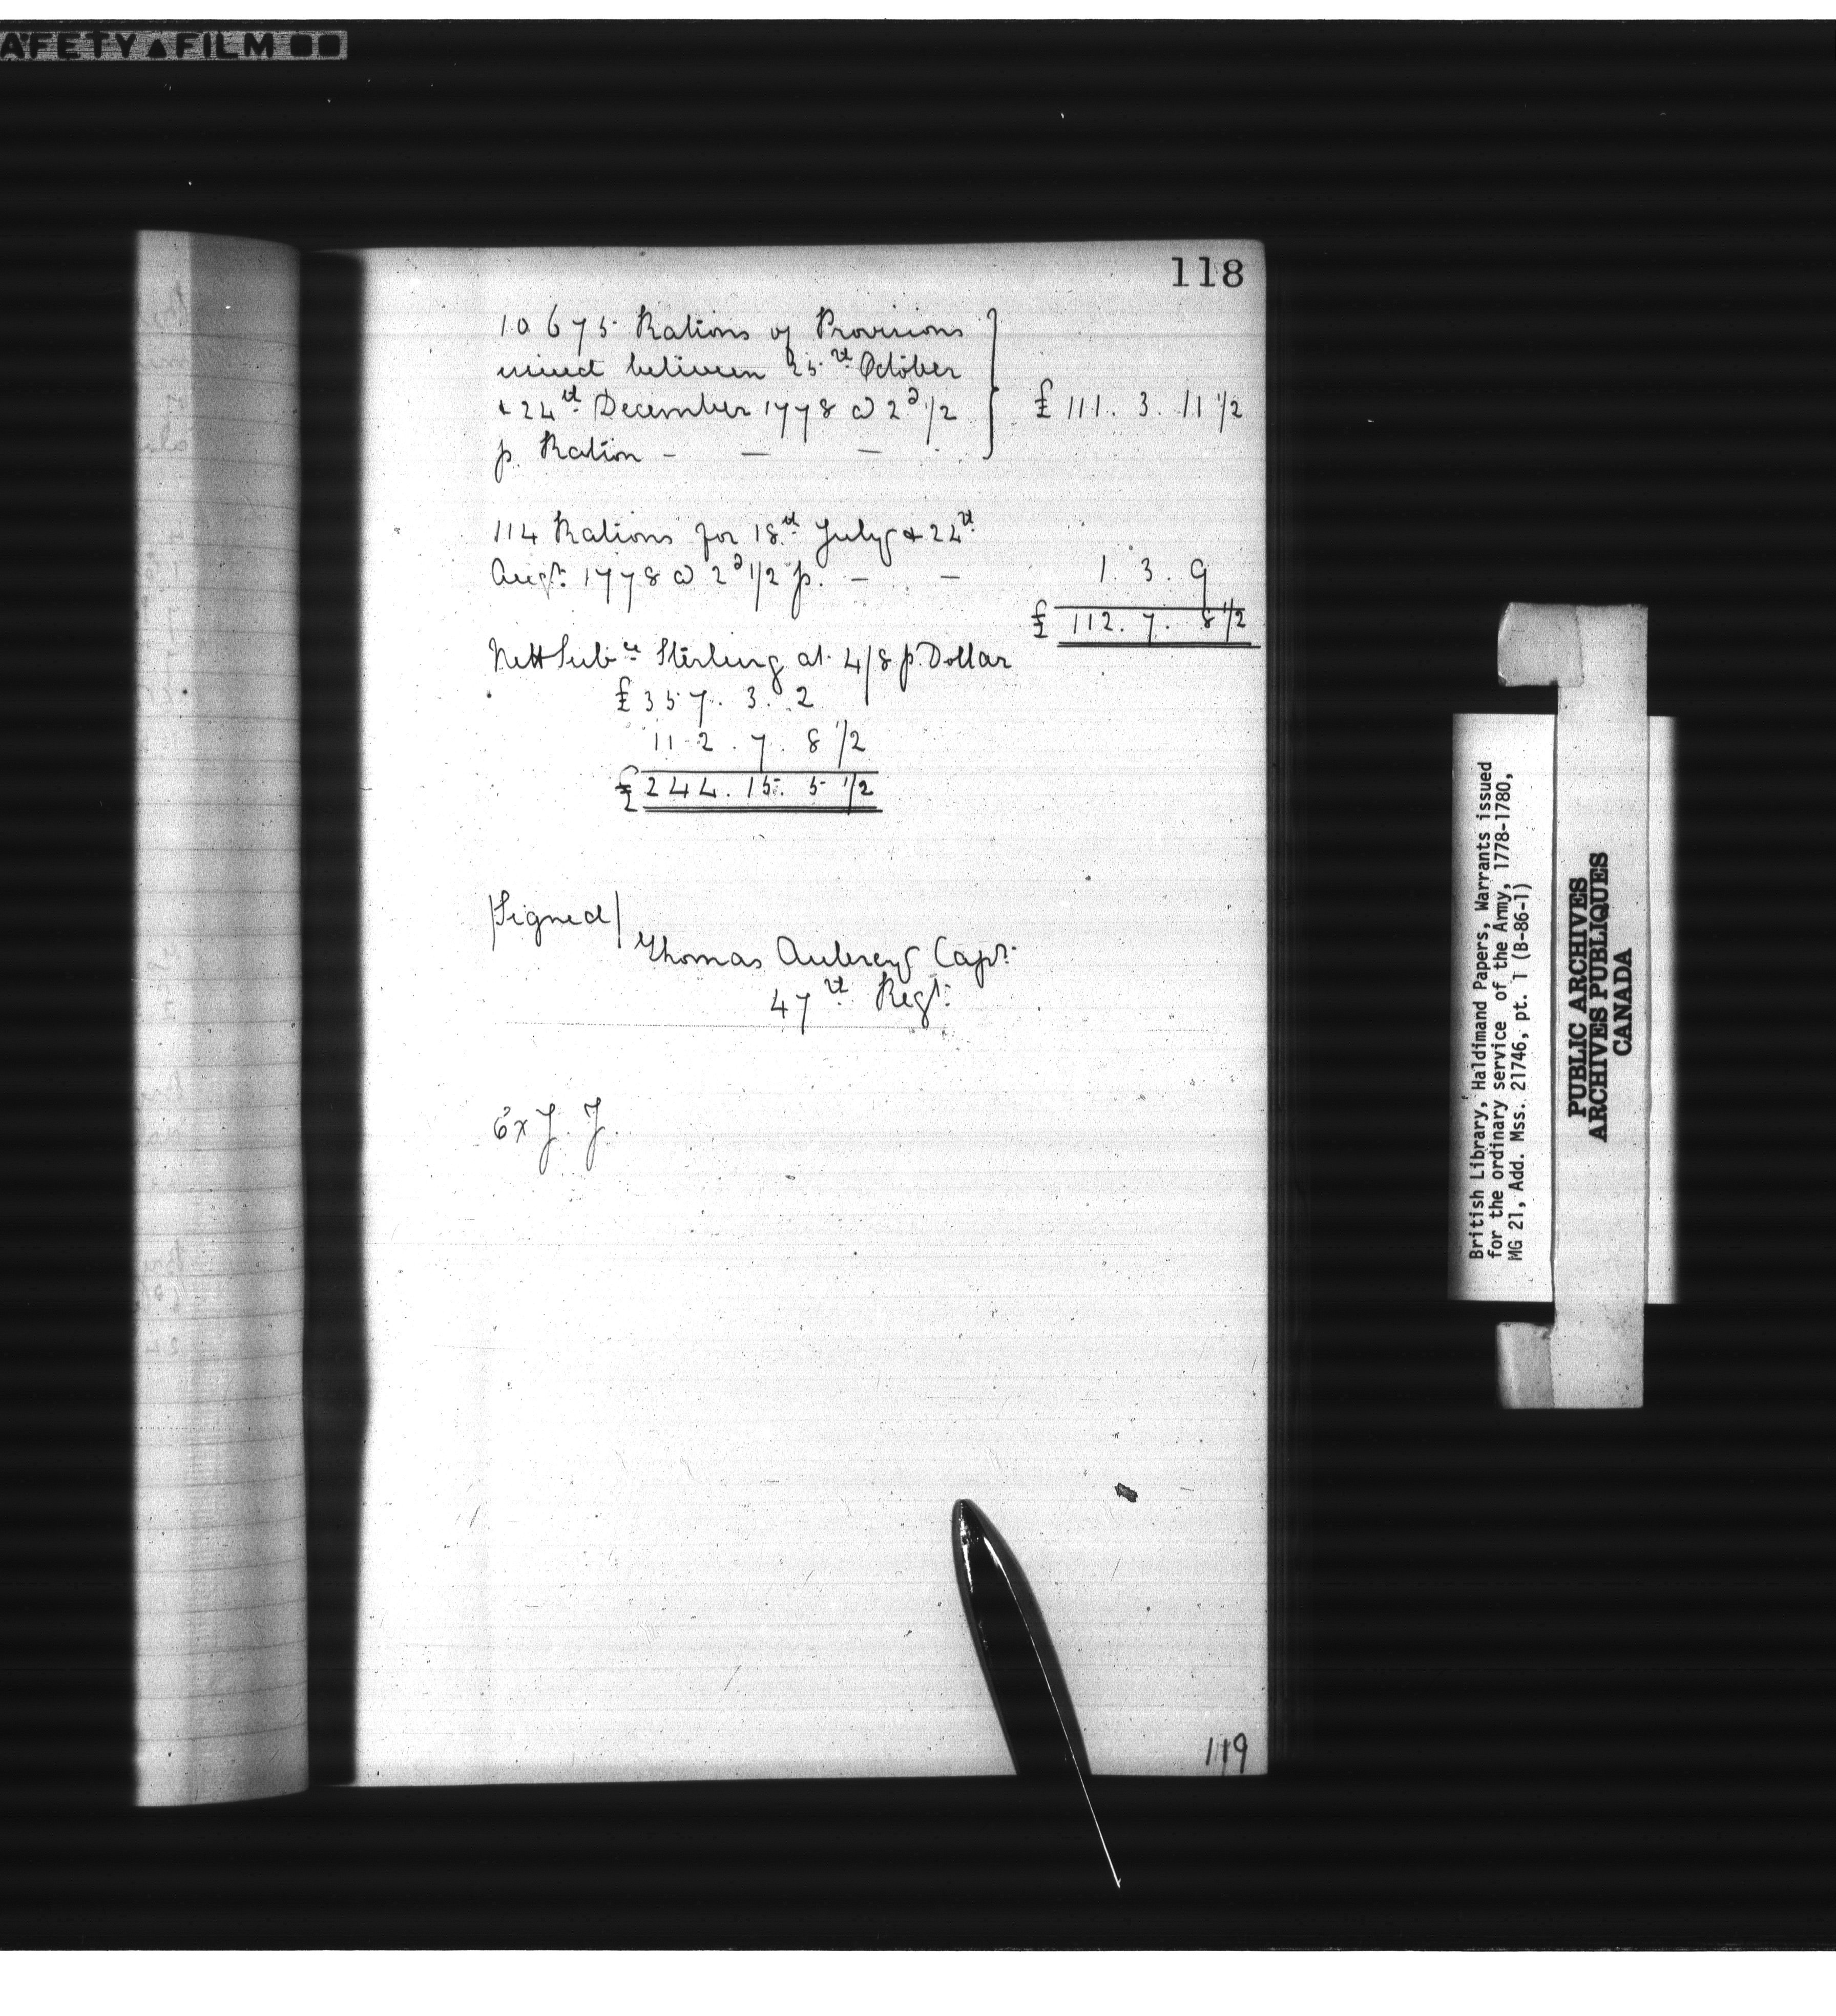 AFETY▲FILM
118
10675 Rations of Provisions
issued between 25th October
& 24th December 1778 @ 2d 1/2
p. Ration - — —
£ 111. 3. 11 1/2
114 Rations for 18th July & 24th
Augt. 1778 @ 2d 1/2 p. — —
1. 3. 9
£ 112. 7. 8 1/2
Nett Subce Sterling at 4/8 p. Dollar
£ 357. 3. 2
112. 7. 8 1/2
£ 244. 15. 5 1/2
|Signed|
Thomas Aubrey Capt.
47th Regt.
Ex J. J.
119
British Library, Haldimand Papers, Warrants issued
for the ordinary service of the Army, 1778-1780,
MG 21, Add. Mss. 21746, pt. 1 (B-86-1)
PUBLIC ARCHIVES
ARCHIVES PUBLIQUES
CANADA